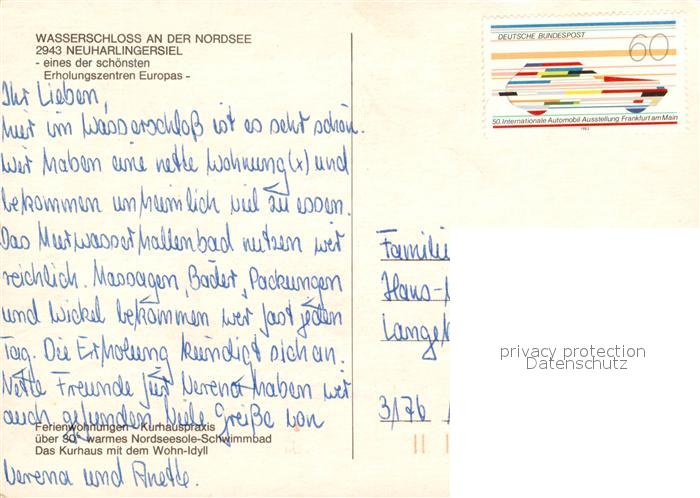 WASSERSCHLOSS AN DER NORDSEE
2943 NEUHARLINGERSIEL
- eines der schönsten
Erholungszentren Europas -
Ihr Lieben,
hier im Wasserschloß ist es sehr schön.
Wir haben eine nette Wohnung (x) und
bekommen unheimlich viel zu essen.
Das Meerwasserhallenbad nutzen wir
reichlich. Massagen, Bäder, Packungen
und Wickel bekommen wir fast jeden
Tag. Die Erholung kündigt sich an.
Nette Freunde für Verena haben wir
auch gefunden. Viele Grüße von
Verena und Anette.
Ferienwohnungen - Kurhauspraxis
über 30° warmes Nordseesole-Schwimmbad
Das Kurhaus mit dem Wohn-Idyll
DEUTSCHE BUNDESPOST
60
50. Internationale Automobil Ausstellung Frankfurt am Main
1983
Familie
Hans-
Lange
3176
privacy protection
Datenschutz